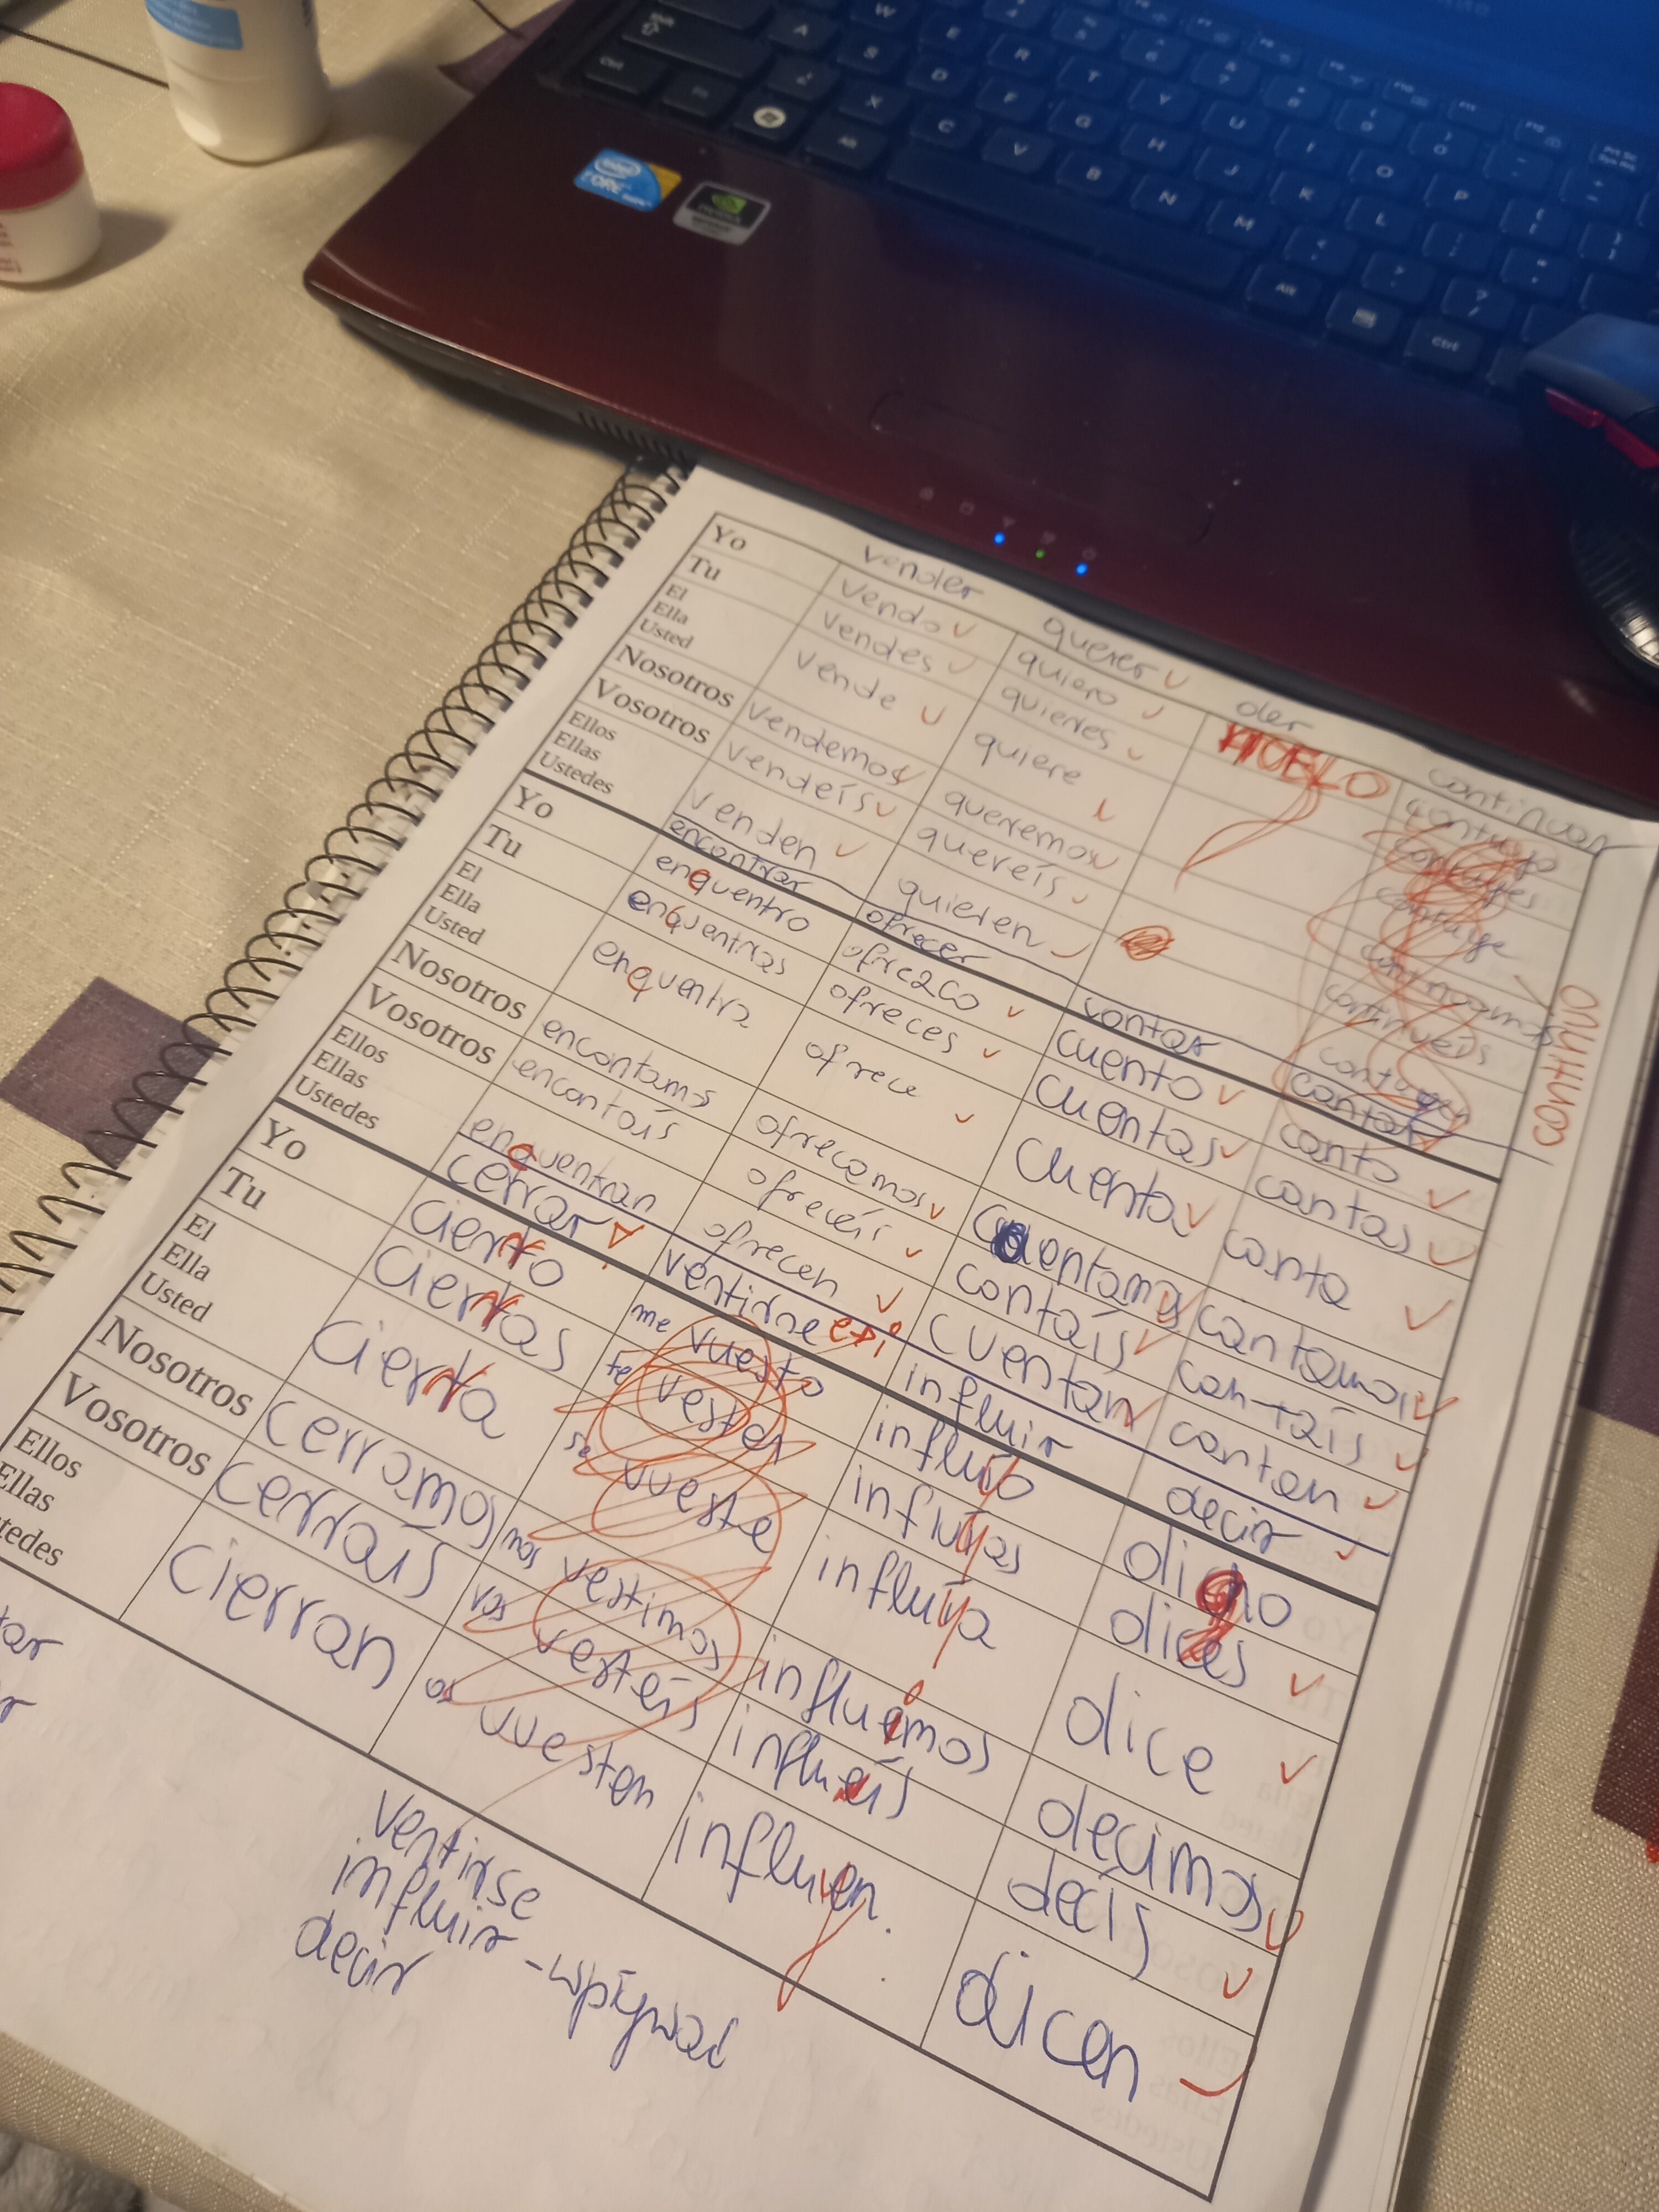 vender querer oler continuar
Yo vendo quiero HUELO
Tu vendes quieres
El
Ella vende quiere
Usted
Nosotros vendemos queremos continuamos
Vosotros vendeís quereís continueís
Ellos
Ellas venden quieren
Ustedes
continúo
encontrar ofrecer contar cantar
Yo enquentro ofrezco cuento canto
Tu enquentras ofreces cuentas cantas
El
Ella enquentra ofrece cuenta canta
Usted
Nosotros encontams ofrecemos cuentamos cantamos
Vosotros encontaís ofreceís contaís cantaís
Ellos
Ellas enquentran ofrecen cuentan cantan
Ustedes
cerrar ventirse e→i influir decir
Yo cierro me vuesto influyo digo
Tu cierras te vestes influyas dices
El
Ella cierra se vueste influya dice
Usted
Nosotros cerramos nos vestimos influimos decimos
Vosotros cerraís vos vesteís influís decís
Ellos
Ellas cierran os vuesten influyen. dicen
stedes
ventirse
influir - wpływać
decir
intel
CORE
NVIDIA
Ctrl
Alt
A S D F G H J K L
X C V B N M
W E R T Y U I O P
Alt
Ctrl